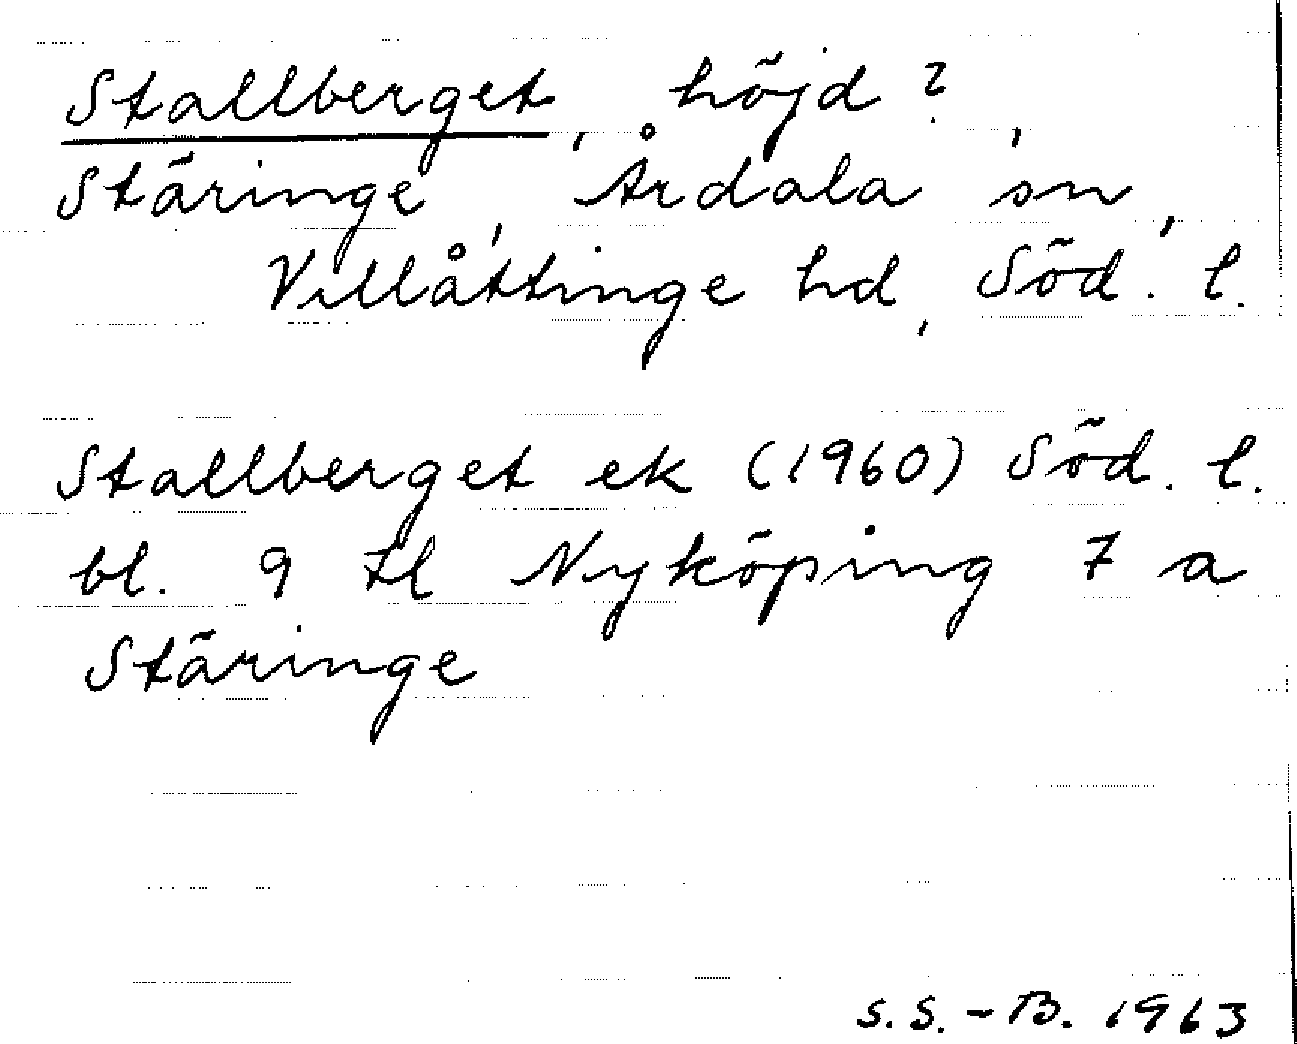 Stallberget, höjd?,
Stäringe, Årdala sn,
Villåttinge hd, Söd. l.
Stallberget ek (1960) Söd. l.
bl. 9 tl Nyköping 7 a
Stäringe
S.S.-B. 1963